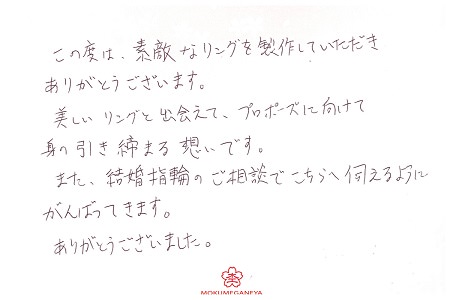 この度は、素敵なリングを製作していただき
ありがとうございます。
美しいリングと出会えて、プロポーズに向けて
身の引き締まる想いです。
また、結婚指輪のご相談でこちらへ伺えるように
がんばってきます。
ありがとうございました。
MOKUMEGANEYA